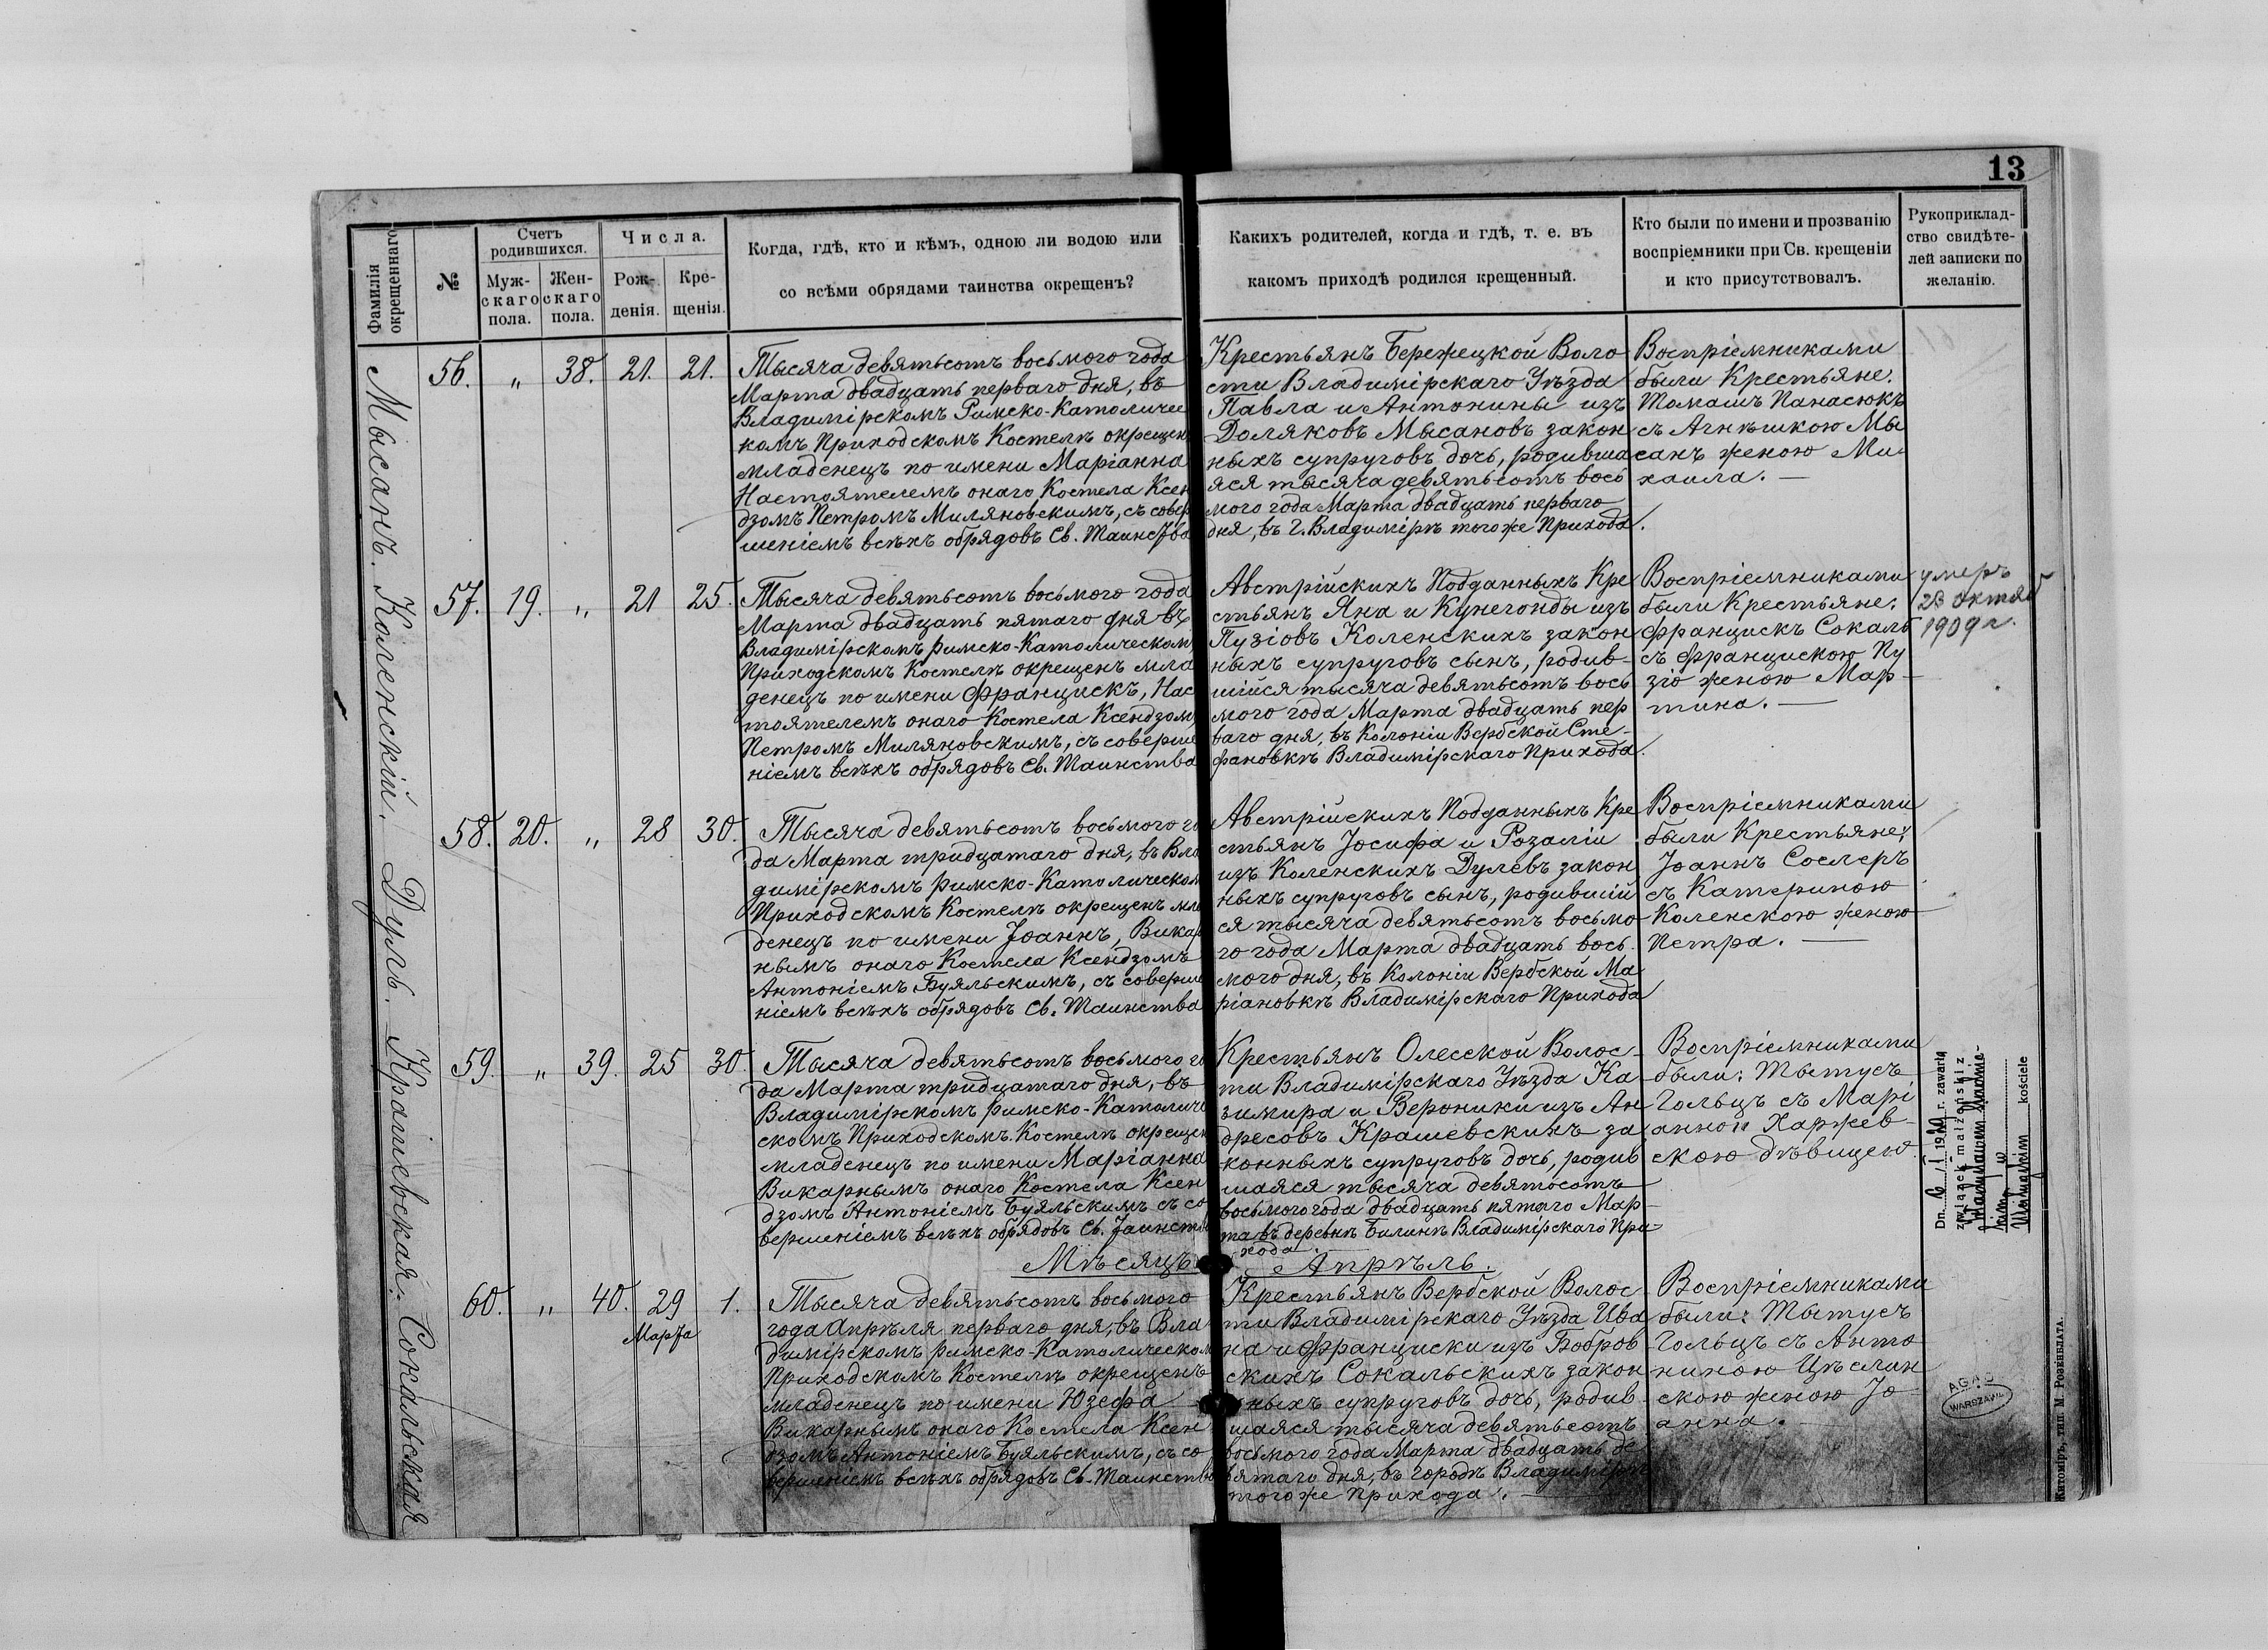 13
Фамилія
окрещеннаго
№
Счетъ
родившихся.
Муж-
скаго
пола.
Жен-
скаго
пола.
Числа.
Рож-
денія.
Кре-
щенія.
Когда, гдѣ, кто и кѣмъ, одною ли водою или
со всѣми обрядами таинства окрещенъ?
Какихъ родителей, когда и гдѣ, т. е. въ
какомъ приходѣ родился крещенный.
Кто были по имени и прозванію
воспріемники при Св. крещеніи
и кто присутствовалъ.
Рукоприклад-
ство свидѣте-
лей записки по
желанію.
Мысанъ.
56. „ 38. 21. 21.
Тысяча девятьсотъ восьмого года
Марта двадцать перваго дня, въ
Владимірскомъ Римско-Католичес
комъ Приходскомъ Костелѣ окрещен
младенецъ по имени Маріанна
Настоятелемъ онаго Костела Ксен
дзомъ Петромъ Миляновскимъ, съ совер
шеніемъ всѣхъ обрядовъ Св. Таинства
Крестьянъ Бережецкой Воло
сти Владимірскаго Уѣзда
Павла и Антонины изъ
Доляковъ Мысановъ закон
ныхъ супруговъ дочь, родивша
яся тысяча девятьсотъ вось
мого года Марта двадцать перваго
дня, въ г. Владимірѣ того же Прихода.
Воспріемниками
были Крестьяне:
Томашъ Панасюкъ
съ Агнѣшкою Мы
санъ женою Ми-
хаила. —
Коленскій.
57. 19. „ 21 25.
Тысяча девятьсотъ восьмого года
Марта двадцать пятаго дня въ
Владимірскомъ Римско-Католическом
Приходскомъ Костелѣ окрещенъ мла
денецъ по имени Францискъ, Нас
тоятелемъ онаго Костела Ксендзом
Петромъ Миляновскимъ, съ соверше
ніемъ всѣхъ обрядовъ Св. Таинства
Австрійскихъ Подданныхъ Кре
стьянъ Яна и Кунегонды изъ
Пузіовъ Коленскихъ закон
ныхъ супруговъ сынъ, родив-
шійся тысяча девятьсотъ вось
мого года Марта двадцать пер
ваго дня, въ Колоніи Вербской Сте-
фановкѣ Владимірскаго Прихода.
Воспріемниками
были Крестьяне:
Францискъ Сокалъ
съ Францискою Пу
зіо женою Мар-
тина. —
умеръ
23 октяб
1909 г.
Дуль.
58. 20. „ 28 30.
Тысяча девятьсотъ восьмого го
да Марта тридцатаго дня, въ Вла
димірскомъ Римско-Католическом
Приходскомъ Костелѣ окрещенъ мла
денецъ по имени Іоаннъ, Викар
нымъ онаго Костела Ксендзомъ
Антоніемъ Буяльскимъ, съ соверше
ніемъ всѣхъ обрядовъ Св. Таинства
Австрійскихъ Подданныхъ Кре
стьянъ Іосифа и Розаліи
изъ Коленскихъ Дулевъ закон
ныхъ супруговъ сынъ, родившій
ся тысяча девятьсотъ восьмо
го года Марта двадцать вось
мого дня, въ Колоніи Вербской Ма
ріановкѣ Владимірскаго Прихода
Воспріемниками
были Крестьяне:
Іоаннъ Сослеръ
съ Катериною
Коленскою женою
Петра. —
Крашевская.
59. „ 39. 25 30.
Тысяча девятьсотъ восьмого го
да Марта тридцатаго дня, въ
Владимірскомъ Римско-Католиче
скомъ Приходскомъ Костелѣ окрещен
младенецъ по имени Маріанна
Викарнымъ онаго Костела Ксен
дзомъ Антоніемъ Буяльскимъ съ со
вершеніемъ всѣхъ обрядовъ Св. Таинства
Крестьянъ Олесской Волос-
ти Владимірскаго Уѣзда Ка-
зимира и Вероники изъ Ан
дресовъ Крашевскихъ за
конныхъ супруговъ дочь, родив
шаяся тысяча девятьсотъ
восьмого года двадцать пятаго Мар-
та въ деревнѣ Билинѣ Владимірскаго При
хода.
Воспріемниками
были: Тытусъ
Гольцъ съ Марі
анною Харжев-
скою дѣвицею.
Dn. 6/I 1930 r. zawarła
związek małżeński z
w
kościele
Мѣсяцъ Апрѣль.
Сокальская
60. „ 40. 29 1.
Марта
Тысяча девятьсотъ восьмого
года Апрѣля перваго дня, въ Вла
димірскомъ Римско-Католическом
Приходскомъ Костелѣ окрещенъ
младенецъ по имени Юзефа
Викарнымъ онаго Костела Ксен
дзомъ Антоніемъ Буяльскимъ, съ со
вершеніемъ всѣхъ обрядовъ Св. Таинства
Крестьянъ Вербской Волос
ти Владимірскаго Уѣзда Ива
на и Франциски изъ Бобров
скихъ Сокальскихъ закон
ныхъ супруговъ дочь, родив-
шаяся тысяча девятьсотъ
восьмого года Марта двадцать де
вятаго дня, въ городѣ Владимірѣ
того же Прихода. —
Воспріемниками
были: Тытусъ
Гольцъ съ Анто
ниною Цѣслин
скою женою Іо-
анна.
AGAD
WARSZAWA
Житоміръ, тип. М. Розенблата.